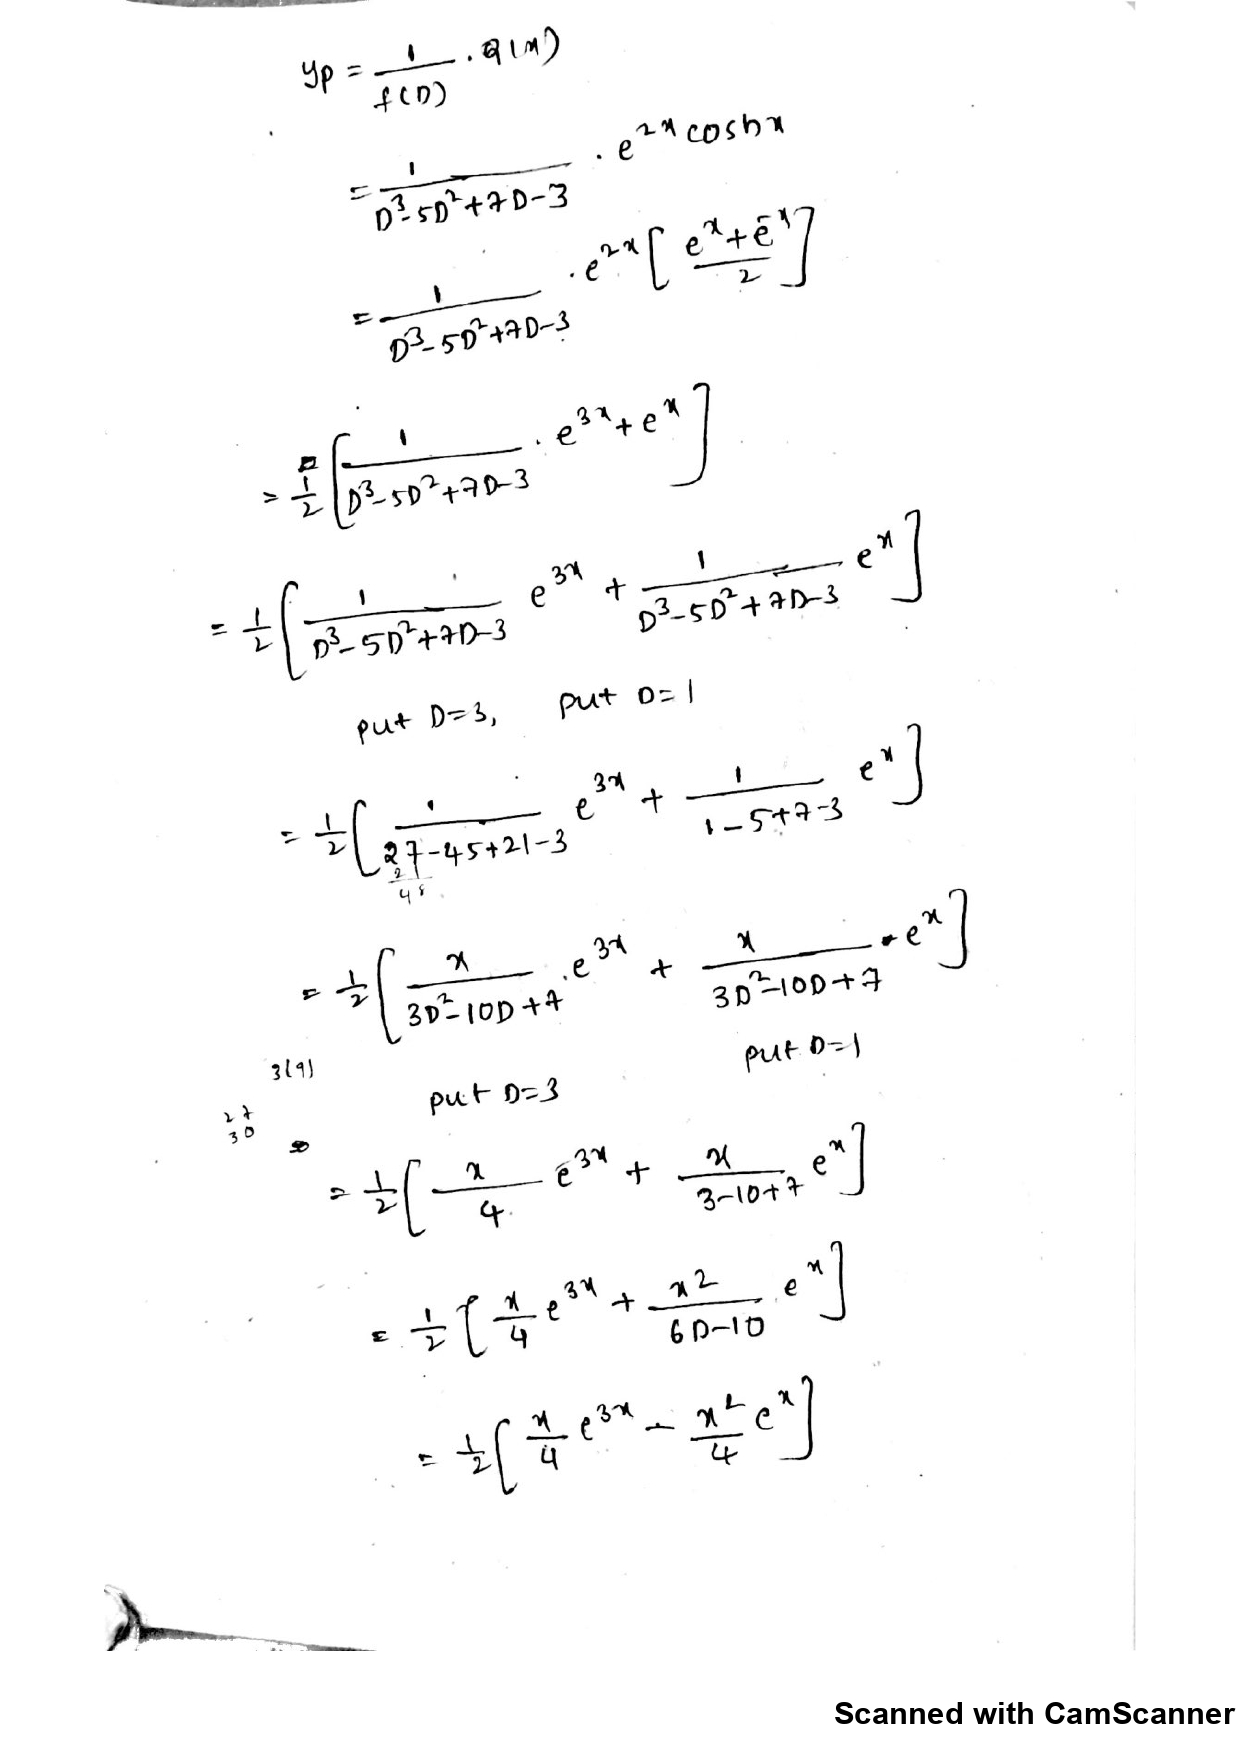 yp = 1/f(D) . Q(x)
= 1/(D³-5D²+7D-3) . e^{2x} coshx
= 1/(D³-5D²+7D-3) . e^{2x} [ (e^x + e^{-x})/2 ]
= 1/2 [ 1/(D³-5D²+7D-3) . e^{3x} + e^x ]
= 1/2 [ 1/(D³-5D²+7D-3) e^{3x} + 1/(D³-5D²+7D-3) e^x ]
put D=3, put D=1
= 1/2 [ 1/(27-45+21-3) e^{3x} + 1/(1-5+7-3) e^x ]
21
48
= 1/2 [ x/(3D²-10D+7) . e^{3x} + x/(3D²-10D+7) . e^x ]
3(9)
put D=3 put D=1
27
30
= 1/2 [ x/4 e^{3x} + x/(3-10+7) e^x ]
= 1/2 [ x/4 e^{3x} + x²/(6D-10) e^x ]
= 1/2 [ x/4 e^{3x} - x²/4 e^x ]
Scanned with CamScanner